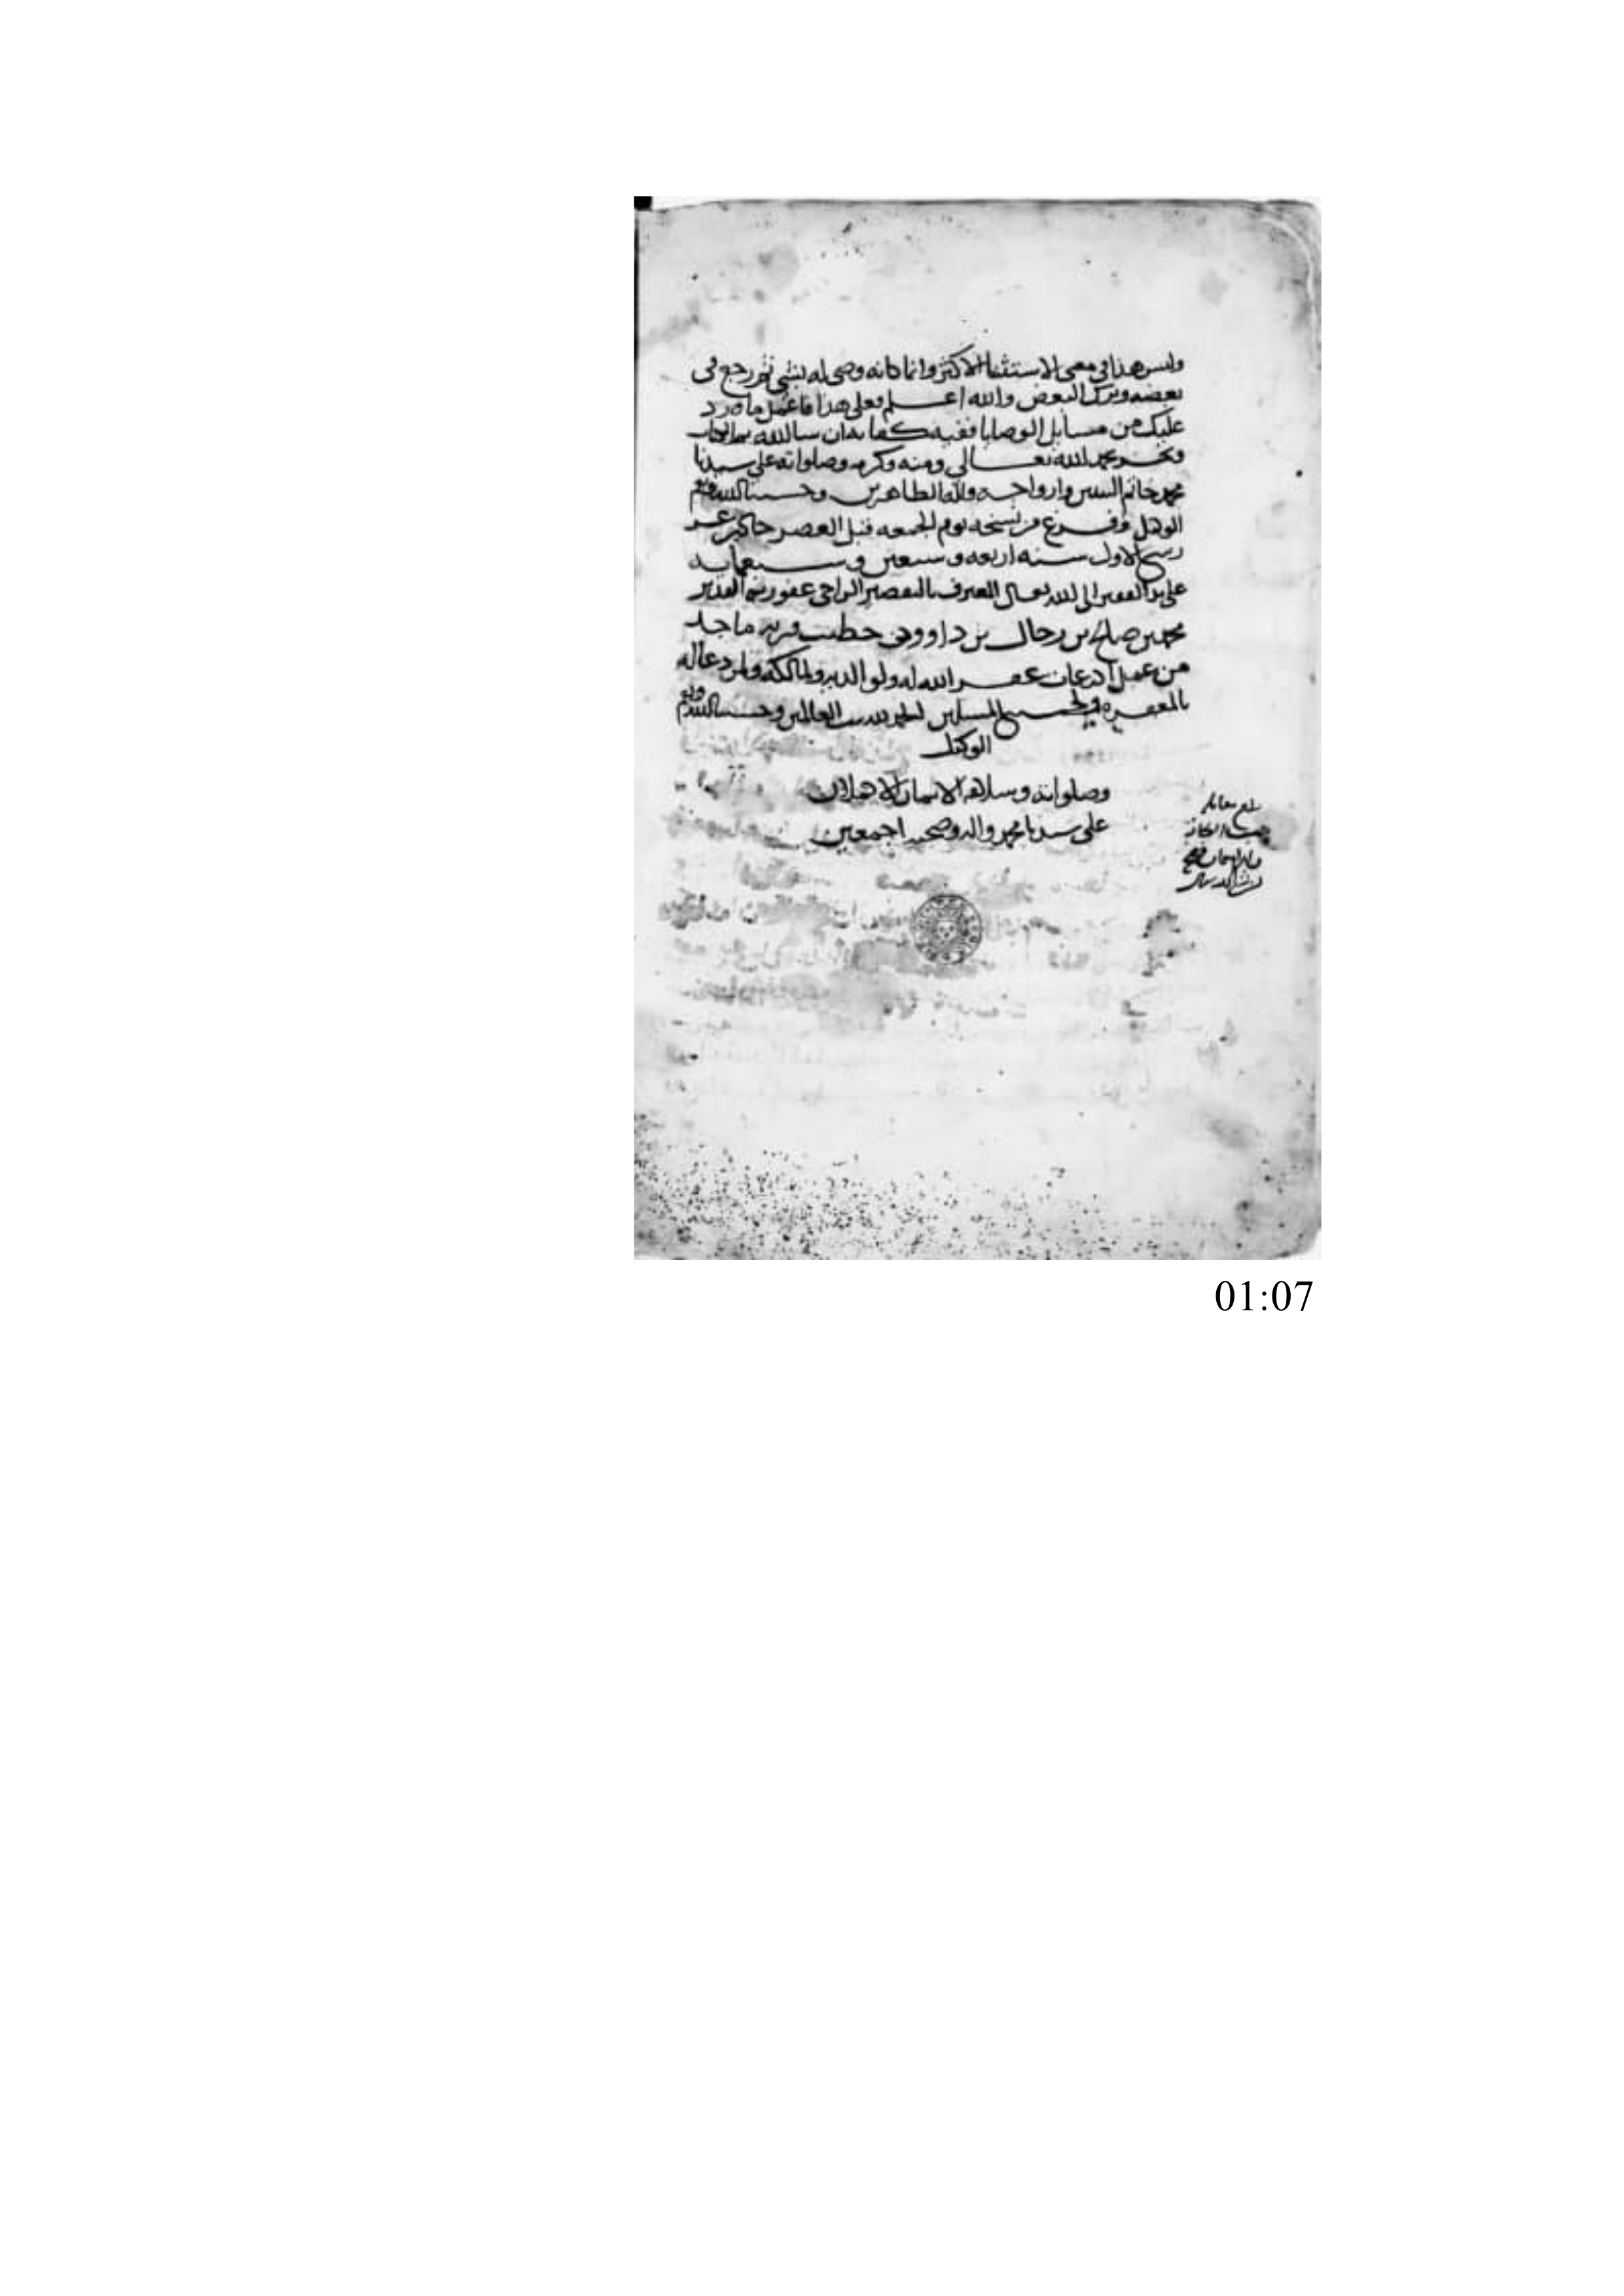 وليس هذا في معنى الاستثنا الاكثر وانما كانه وصى له بشي ثم رجع في
بعضه وترك البعض والله اعلم فعلى هذا فاعمل ما ورد
عليك من مسايل الوصايا ففيه كفايه ان شا الله تعالى
بحمد الله تعالى ومنه وكرمه وصلواته على سيدنا
محمد خاتم النبيين وازواجه واله الطاهرين وحسبنا الله ونعم
الوكيل وفرغ من نسخه يوم الجمعه قبل العصر حادي عشر
ربيع الاول سنه اربعه وسبعين وسبعمايه
على يد الفقير الى الله تعالى المعترف بالتقصير الراجي عفو ربه القدير
محمد بن صالح بن رحال بن داوود خطيب قريه ماجد
من عمل اذرعات غفر الله له ولوالديه ولمالكه ولمن دعا له
بالمغفره ولجميع المسلمين الحمد لله رب العالمين وحسبنا الله ونعم
الوكيل
وصلواته وسلامه الاتمان الاكملان
على سيدنا محمد واله وصحبه اجمعين
بلغ مقابله
01:07